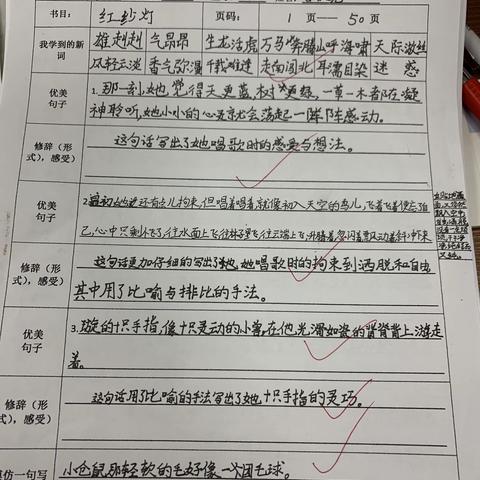 书目： 红纱灯 页码： 1 页—— 50 页
我学到的新词 雄赳赳 气昂昂 生龙活虎 万马奔腾 山呼海啸 天际
风轻云淡 香气弥漫 千载难逢 走南闯北 耳濡目染 迷惑
优美句子 1. 那一刻,她觉得天更蓝,树更绿,一草一木都在凝
神聆听,她小小的心灵就会荡起一阵阵感动。
修辞（形式），感受） 这句话写出了她唱歌时的感受与想法。
优美句子 2. 最初她还有点儿拘束,但唱着唱着就像初入天空的鸟儿,飞着飞着便忘了自
己,心中只剩下飞了,往水面上飞,往林子里飞,往云端上飞
修辞（形式），感受） 这句话更加仔细的写出了她唱歌时的拘束到洒脱和自由
其中用了比喻与排比的手法。
优美句子 3. 璇的十只手指,像十只灵动的小兽,在他光滑如瓷的脊背上游走
着。
修辞（形式），感受） 这句话用了比喻的手法写出了她十只手指的灵巧。
仿一句写 小仓鼠那轻软的毛好像一个团毛球。